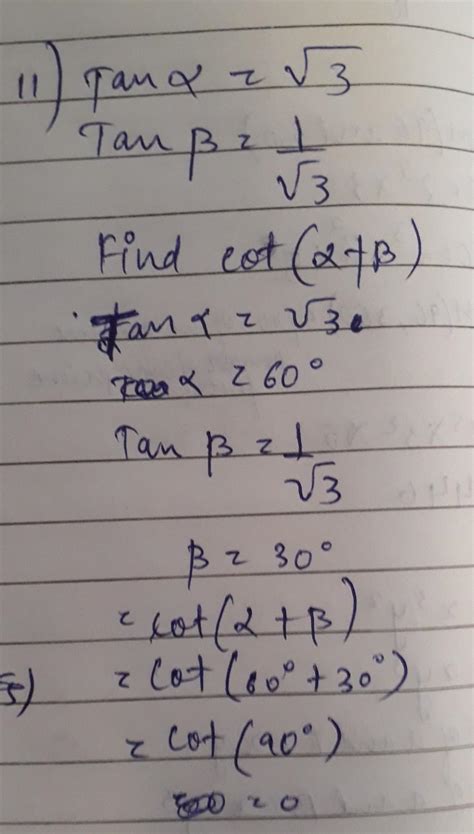 11) Tan α = √3
Tan β = 1/√3
Find cot(α+β)
Tan α = √3
α = 60°
Tan β = 1/√3
β = 30°
= cot(α + β)
5) = cot(60° + 30°)
= cot(90°)
= 0